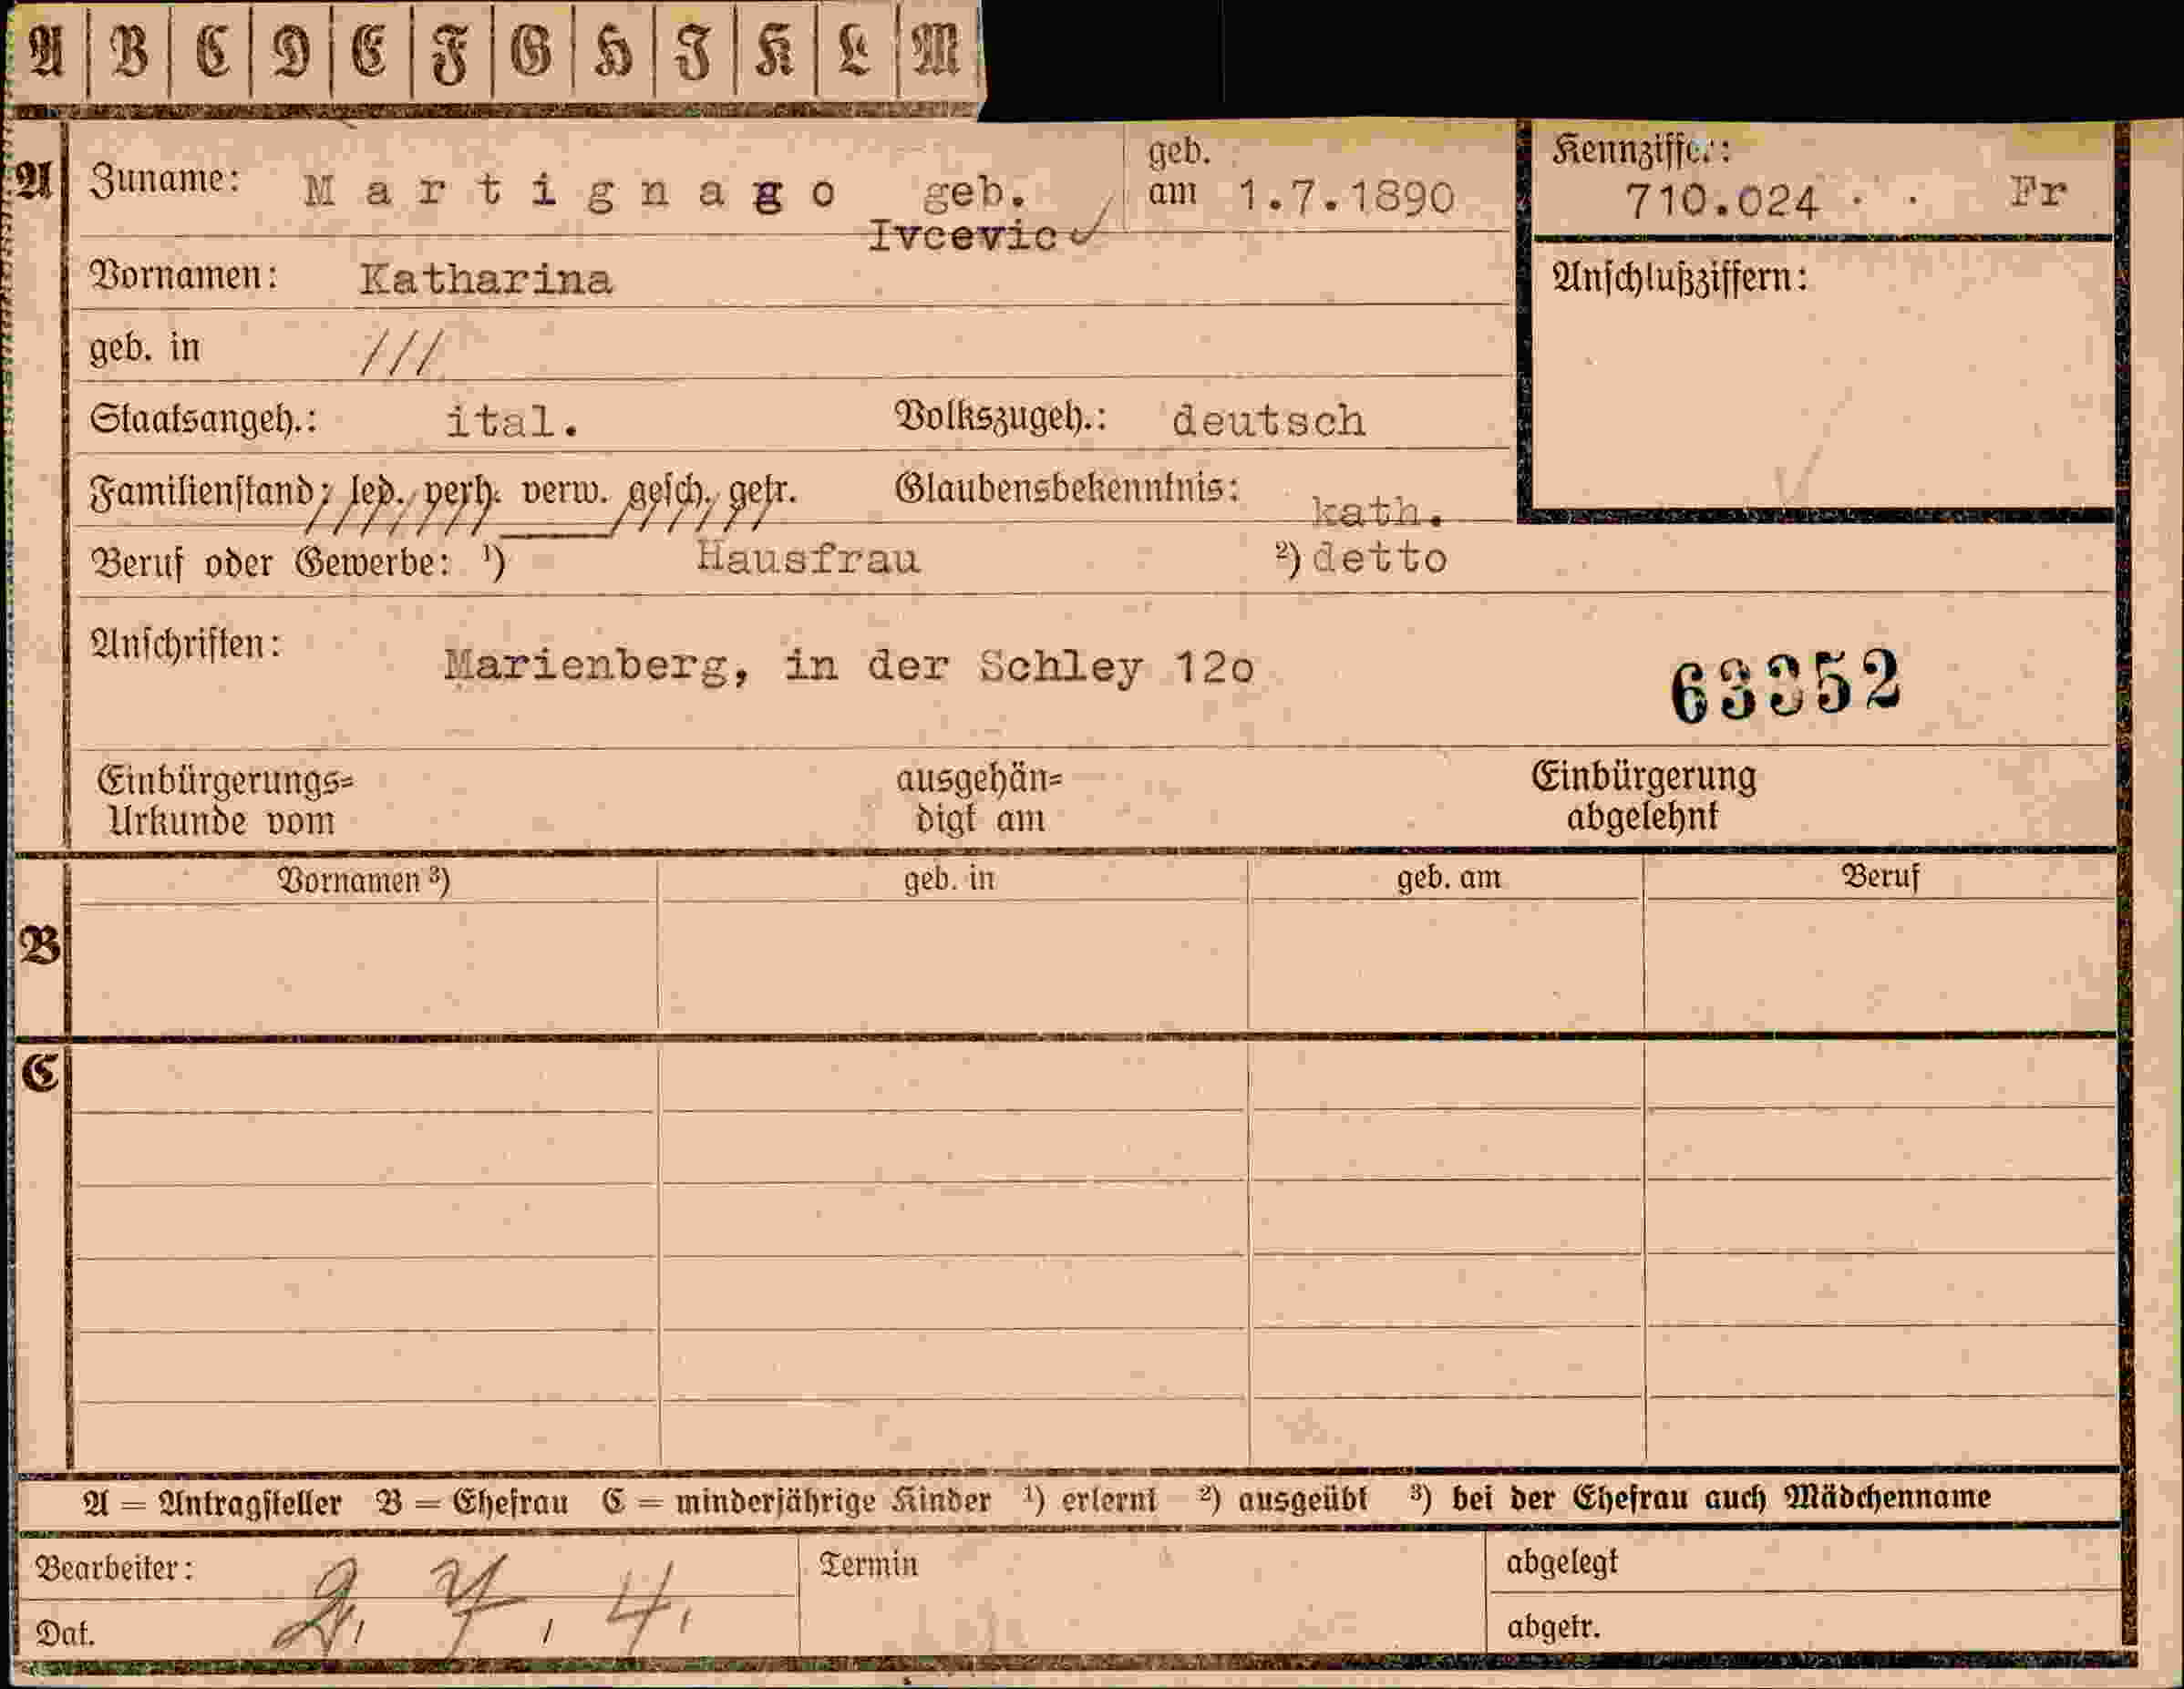 A B C D E F G H I K L M
A Zuname: Martignago geb. Ivcevic
geb. am 1.7.1890
Kennziffer: 710.024 . . Fr
Vornamen: Katharina
Anschlußziffern:
geb. in ///
Staatsangeh.: ital. Volkszugeh.: deutsch
Familienstand: led. verh. verw. gesch. getr. Glaubensbekenntnis: kath.
Beruf oder Gewerbe: ¹) Hausfrau ²) detto
Anschriften: Marienberg, in der Schley 12o
63352
Einbürgerungs= Urkunde vom
ausgehän= digt am
Einbürgerung abgelehnt
Vornamen ³) geb. in geb. am Beruf
B
C
A = Antragsteller B = Ehefrau C = minderjährige Kinder ¹) erlernt ²) ausgeübt ³) bei der Ehefrau auch Mädchenname
Bearbeiter: Termin abgelegt
Dat. abgetr.